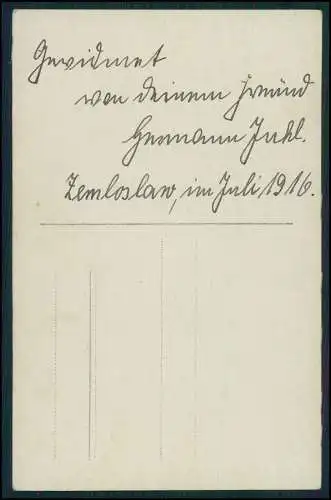 Gewidmet
von deinem Freund
Hermann Juhl.
Zemloslaw, im Juli 1916.